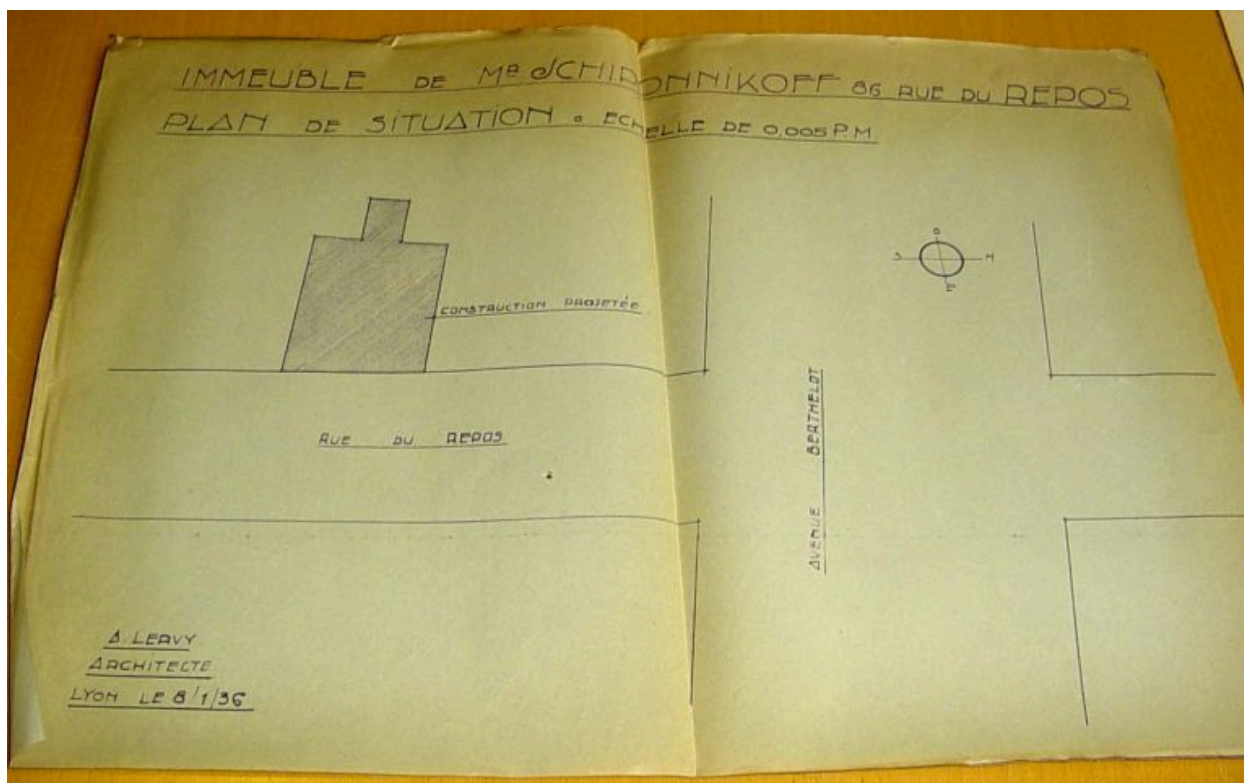 IMMEUBLE DE Mr SCHIRONNIKOFF 86 RUE DU REPOS
PLAN DE SITUATION . ECHELLE DE 0,005 P.M.
O
S N
E
CONSTRUCTION PROJETÉE
AVENUE BERTHELOT
RUE DU REPOS
A. LERVY
ARCHITECTE
LYON LE 8/1/36